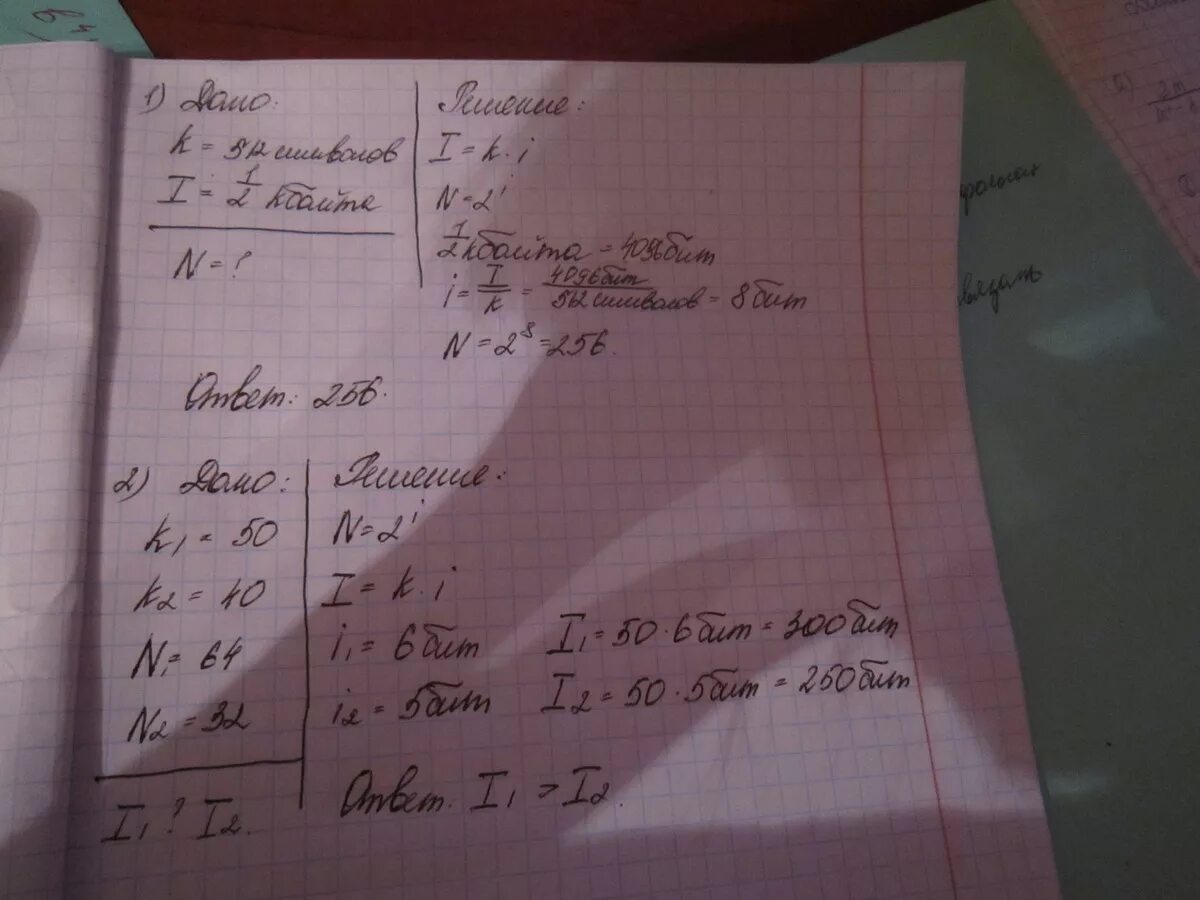 1) Дано:
k = 512 символов
I = 1/2 кбайта
N = ?
Решение:
I = k · i
N = 2^i
1/2 кбайта = 4096 бит
i = I/k = 4096 бит/512 символов = 8 бит
N = 2^8 = 256.
Ответ: 256.
2) Дано:
k1 = 50
k2 = 40
N1 = 64
N2 = 32
I1 ? I2.
Решение:
N = 2^i
I = k · i
i1 = 6 бит I1 = 50 · 6 бит = 300 бит
i2 = 5 бит I2 = 50 · 5 бит = 250 бит
Ответ. I1 > I2.